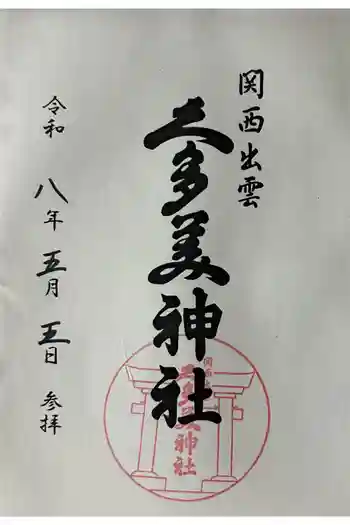 関西出雲
久多美神社
令和 八年 五月 五日 参拝
久多美神社